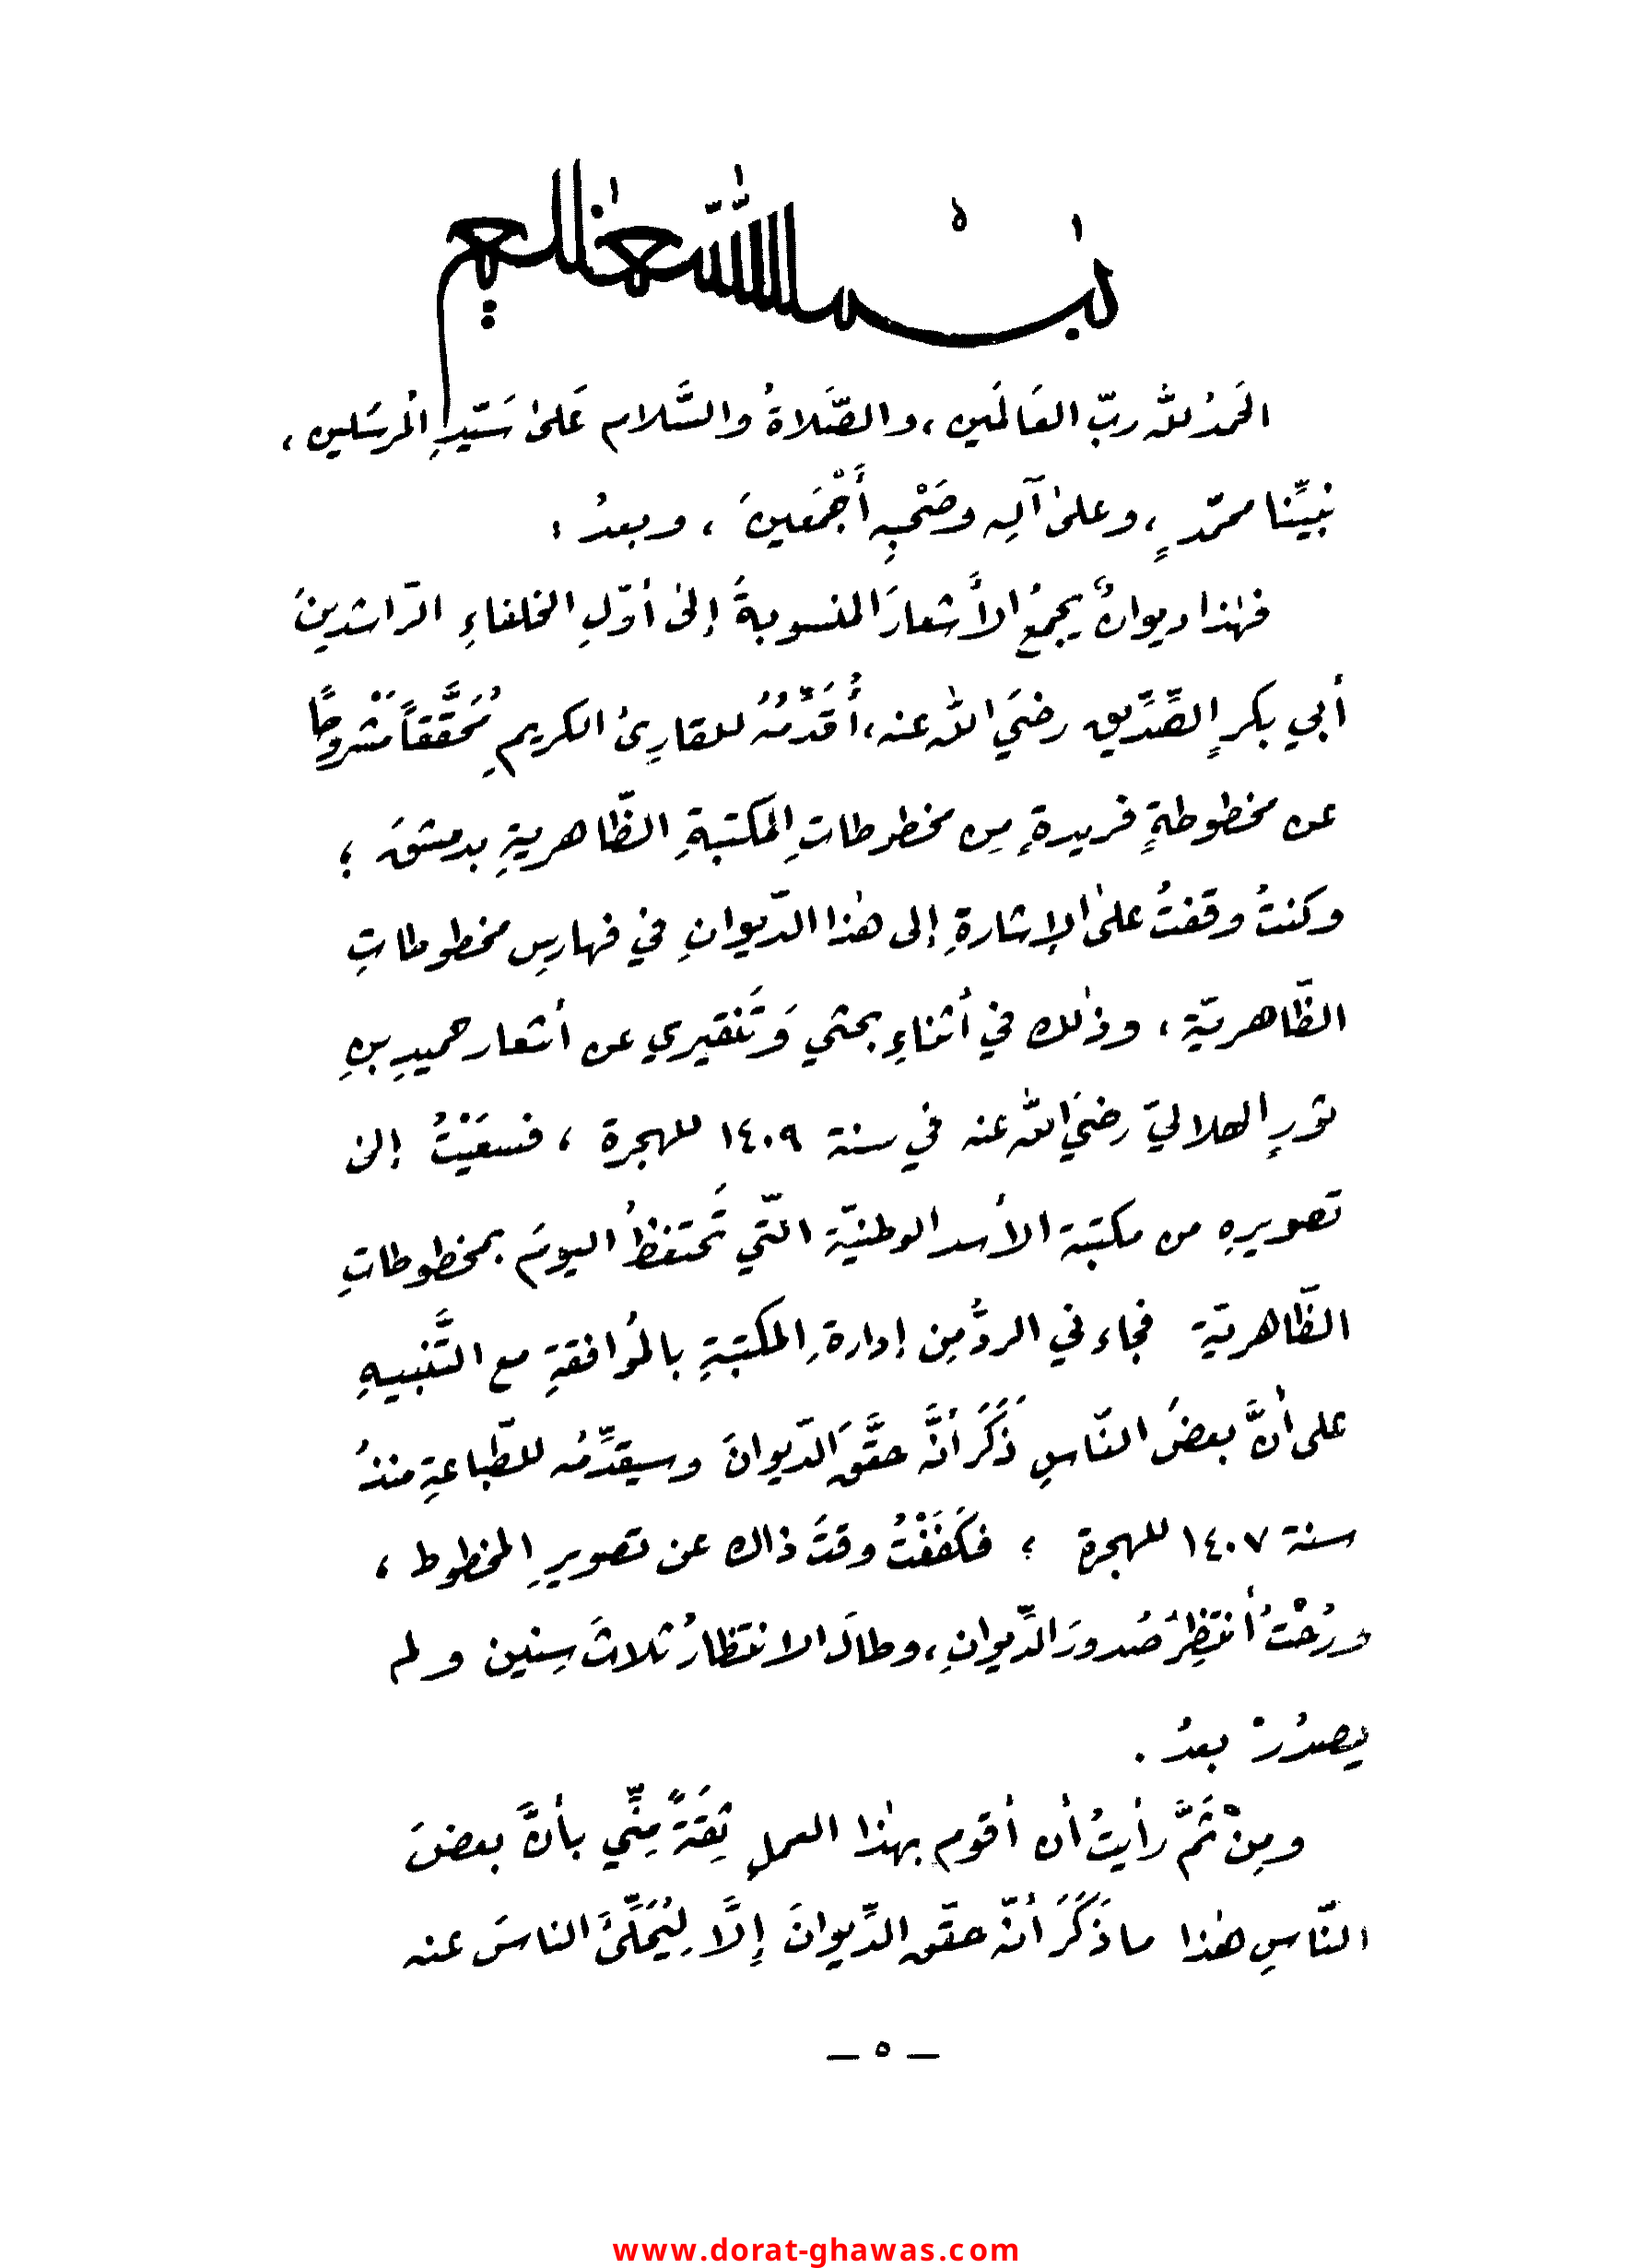 بسم الله الرحمن الرحيم
الحَمدُ لله ربّ العَالَمين ، والصَّلاةُ والسَّلام عَلىٰ سَيّدِ المُرسَلين ،
نبيِّنا محمّدٍ ، وعلىٰ آلِه وصَحْبِهِ أَجْمَعينَ ، وبعدُ :
فهٰذا ديوانٌ يجمعُ الأَشعارَ المنسوبةَ إلىٰ أوّلِ الخلفاءِ الرّاشدينَ
أبي بكرٍ الصِّدِّيق رضيَ الله عنه ، أُقَدِّمُهُ للقارِئ الكريمِ مُحَقَّقاً مَشْروحًا
عن مخطوطةٍ فريدةٍ مِن مخطوطاتِ المكتبةِ الظّاهريةِ بدمشقَ ؛
وكنتُ وقفتُ علىٰ الإشارةِ إلى هٰذا الدّيوانِ في فهارسِ مخطوطاتِ
الظّاهريّةِ ، وذٰلك في أثناءِ بحثي وَتَنقيري عن أشعار حميدِ بنِ
ثورٍ الهلاليّ رضيَ الله عنه في سنة ١٤٠٩ للهجرة ، فسعَيْتُ إلىٰ
تصويرِهِ من مكتبة الأسد الوطنيّة التّي تَحتفظُ اليومَ بمخطوطاتِ
الظّاهريّة فجاءني الردُّ مِن إدارةِ المكتبةِ بالمُوافقةِ مع التَّنبيهِ
على أنَّ بعضَ النّاسِ ذَكَرَ أنَّه حقَّقَ الدّيوانَ وسيقدِّمُه للطّباعةِ منذُ
سنة ١٤٠٧ للهجرة ؛ فكَفَفْتُ وقتَ ذاك عن تصويرِ المخطوط ،
ورُحْتُ أنتظِرُ صُدورَ الدِّيوانِ ، وطالَ الانتظارُ ثلاثَ سِنين ولم
يصدُرْ بعدُ .
ومِنْ ثَمَّ رأيتُ أن أقوم بهٰذا العملِ ثِقَةً مِنِّي بأنَّ بعضَ
النّاسِ هٰذا ما ذَكَرَ أنّه حقّق الدِّيوانَ إلَّا لِيُحَلِّئَ الناسَ عنه
— ٥ —
www.dorat-ghawas.com